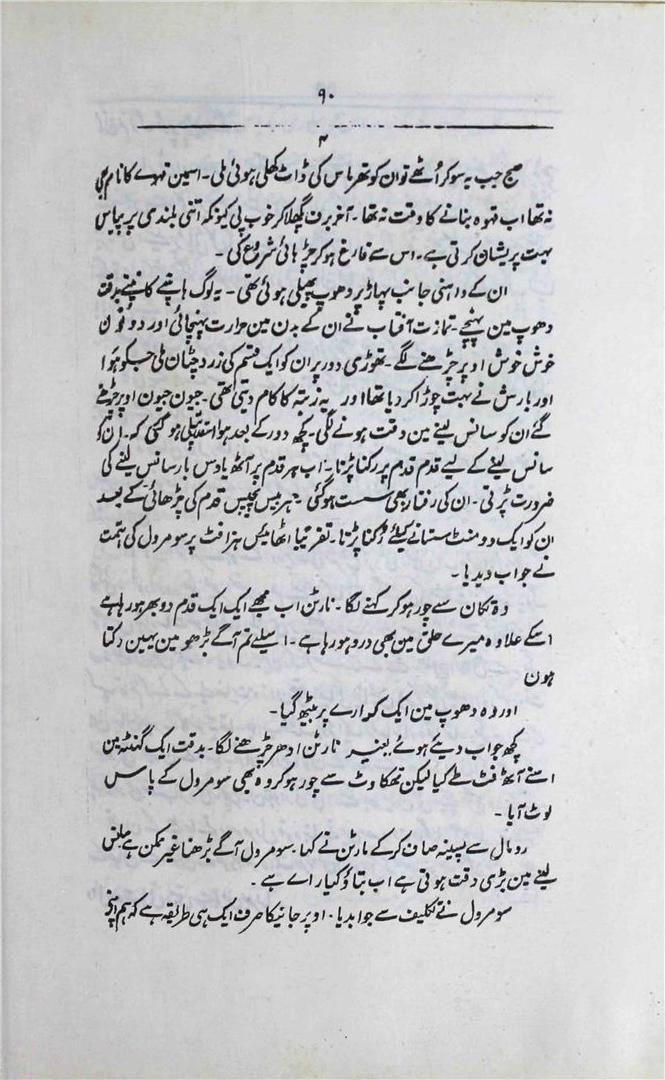 ۹۰
۳
صبح جب یہ سوکر اُٹھے تو ان کو تھرماس کی ڈاٹ کھلی ہوئی ملی۔ اسمین قہوے کا نام بھی
نہ تھا اب قہوہ بنانے کا وقت نہ تھا۔ آخر برف پگھلاکر خوب پی کیونکہ اتنی بلندی پر پیاس
بہت پریشان کرتی ہے۔ اس سے فارغ ہوکر چڑھائی شروع کی۔
ان کے داہنی جانب پہاڑ پر دھوپ پھیلی ہوئی تھی۔ یہ لوگ ہانپتے کانپتے بدقت
دھوپ مین پہنچے۔ تمازت آفتاب نے ان کے بدن مین حرارت پہنچائی اور دونون
خوش خوش اوپر چڑھنے لگے۔ تھوڑی دور پر ان کو ایک قسم کی زرد چٹان ملی جسکو ہوا
اور بارش نے بہت چوڑا کر دیا تھا اور یہ زینہ کا کام دیتی تھی۔ جیون جیون اوپر چڑھتے
گئے ان کو سانس لینے مین دقت ہونے لگی۔ کچھ دور کے بعد ہوا اسقدر پتلی ہو گئی کہ ان کو
سانس لینے کے لیے قدم قدم پر رکنا پڑتا۔ اب ہر قدم پر آٹھ یا دس بار سانس لینے کی
ضرورت پڑتی۔ ان کی رفتار بھی سست ہوگئی۔ ہر بیس پچیس قدم کی چڑھائی کے بعد
ان کو ایک دو منٹ ستانے کیلئے رُکنا پڑتا۔ تقریباً اٹھائیس ہزار فٹ پر سومرول کی ہمت
نے جواب دیدیا۔
وہ تکان سے چور ہوکر کہنے لگا۔ نارٹن اب مجھے ایک ایک قدم دوبھر ہو رہا ہے
اسکے علاوہ میرے حلق مین بھی درد ہو رہا ہے۔ اسلیے تم آگے بڑھو مین یہین رکتا
ہون
اور وہ دھوپ مین ایک کوارے پر بیٹھ گیا۔
کچھ جواب دیئے ہوئے بغیر نارٹن ادھر چڑھنے لگا۔ بدقت ایک گھنٹہ مین
اسنے آٹھ فٹ طے کیا لیکن تھکاوٹ سے چور ہوکر وہ بھی سومرول کے پاس
لوٹ آیا۔
رومال سے پسینہ صاف کرکے مارٹن نے کہا۔ سومرول آگے بڑھنا غیر ممکن ہے سانس
لینے مین بڑی دقت ہوتی ہے اب بتاؤ کیا رائے ہے۔
سومرول نے تکلیف سے جوابدیا۔ اوپر جانیکا صرف ایک ہی طریقہ ہے کہ ہم اپنے